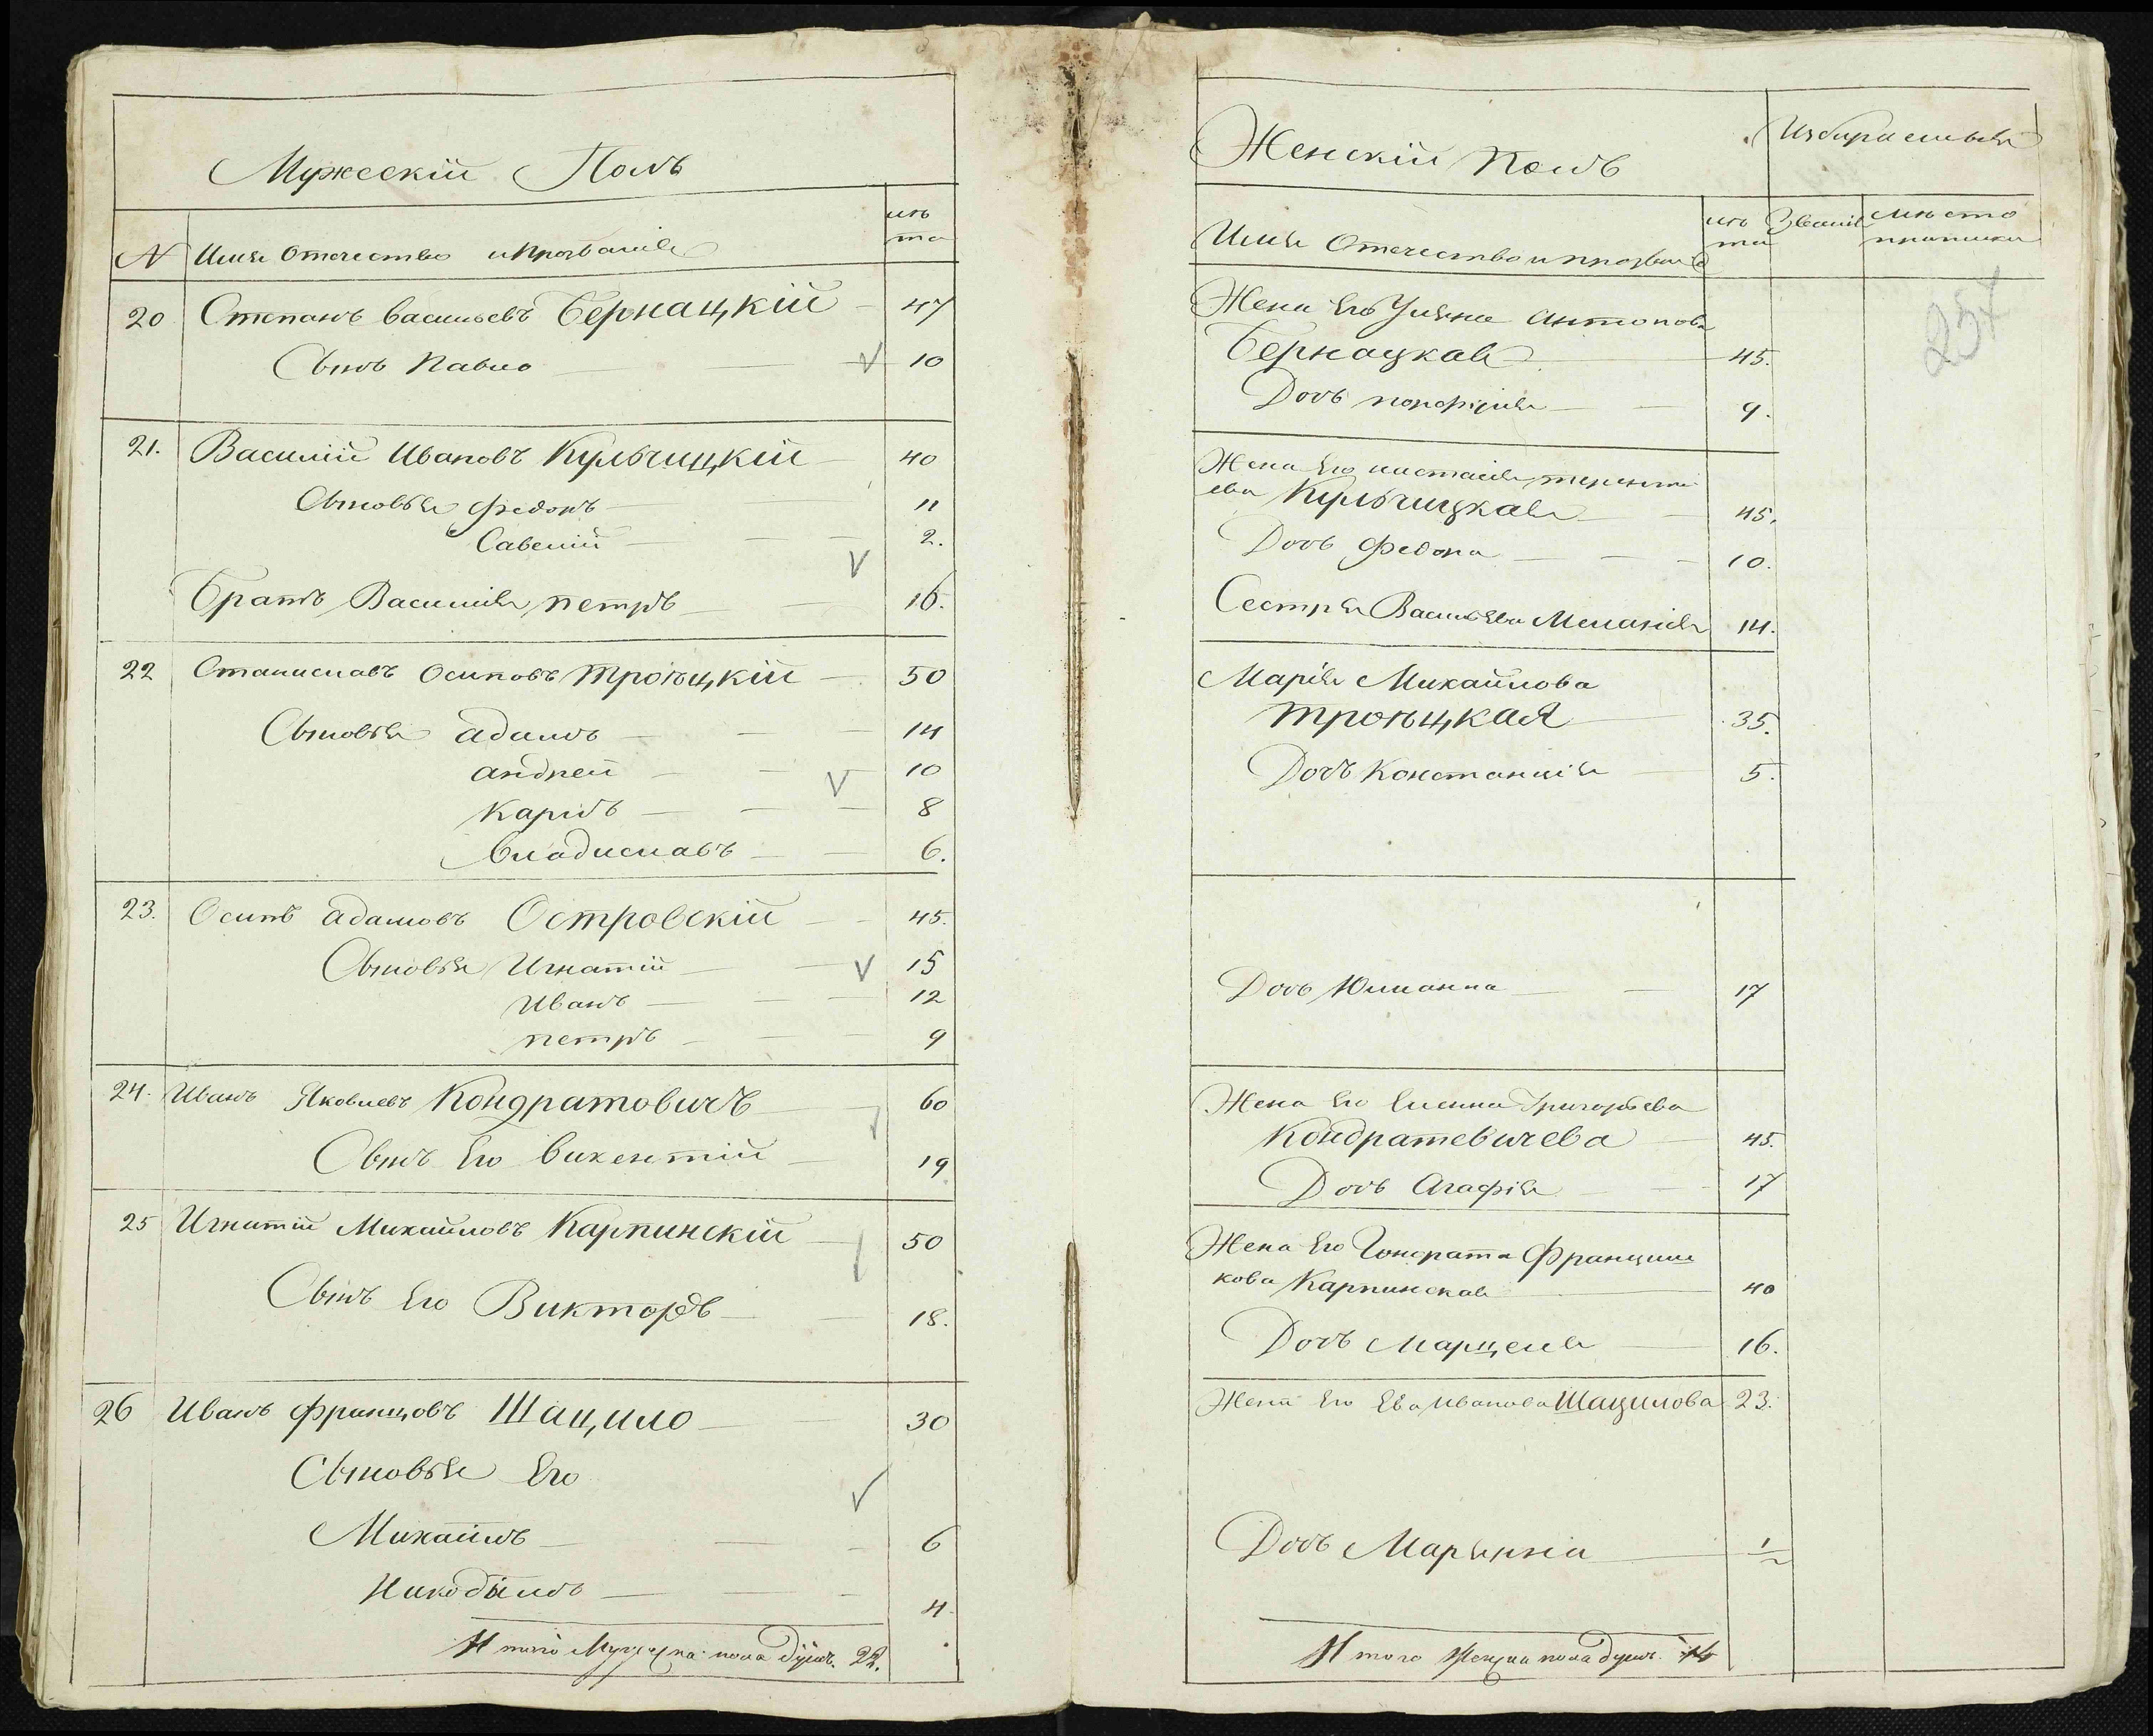 Мужескій Полъ
N Имя Отечество и прозваніе лѣта
20 Степанъ Васильевъ Бернацкій 47
Сынъ Павло 10
21. Василій Ивановъ Кульчицкій 40
Сыновья Федоръ 11
Савелій 2.
Братъ Василія Петръ 16.
22 Станиславъ Осиповъ Троѣцкій 50
Сыновья Адамъ 14
Андрей 10
Карлъ 8
Владиславъ 6.
23. Осипъ Адамовъ Островскій 45.
Сыновья Игнатій 15
Иванъ 12
Петръ 9
24. Иванъ Яковлевъ Кондратовичъ 60
Сынъ Его Викентій 19
25 Игнатій Михайловъ Карпинскій 50
Сынъ Его Викторъ 18.
26 Иванъ Францовъ Шацило 30
Сыновья Его
Михаилъ 6
Никодимъ 4
Итого Мужеска пола душъ. 22.
Женскій Полъ
Имя Отечество и прозваніе лѣта Званіе мѣсто
приписки
Жена Его Ульяна Антонова
Бернацкая 45.
Дочь 9.
Жена Его Настасія Теренті
ева Кульчицкая 45.
Дочь Федора 10.
Сестра Васильева Меланія 14.
Марія Михайлова
Троѣцкая 35.
Дочь Констанція 5.
Дочь Юлианна 17
Жена Его Елена Григорьева
Кондратевичева 45.
Дочь Агафія 17
Жена Его Гонората Франциш
кова Карпинская 40
Дочь Марцеля 16.
Жена Его Ева Иванова Шацилова 23.
Дочь Марянна 1/2
Итого Женска пола душъ. 14